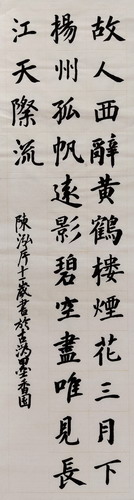 故人西辭黃鶴樓煙花三月下
楊州孤帆遠影碧空盡唯見長
江天際流
陳泓斤十二歲書於古鴻墨香園